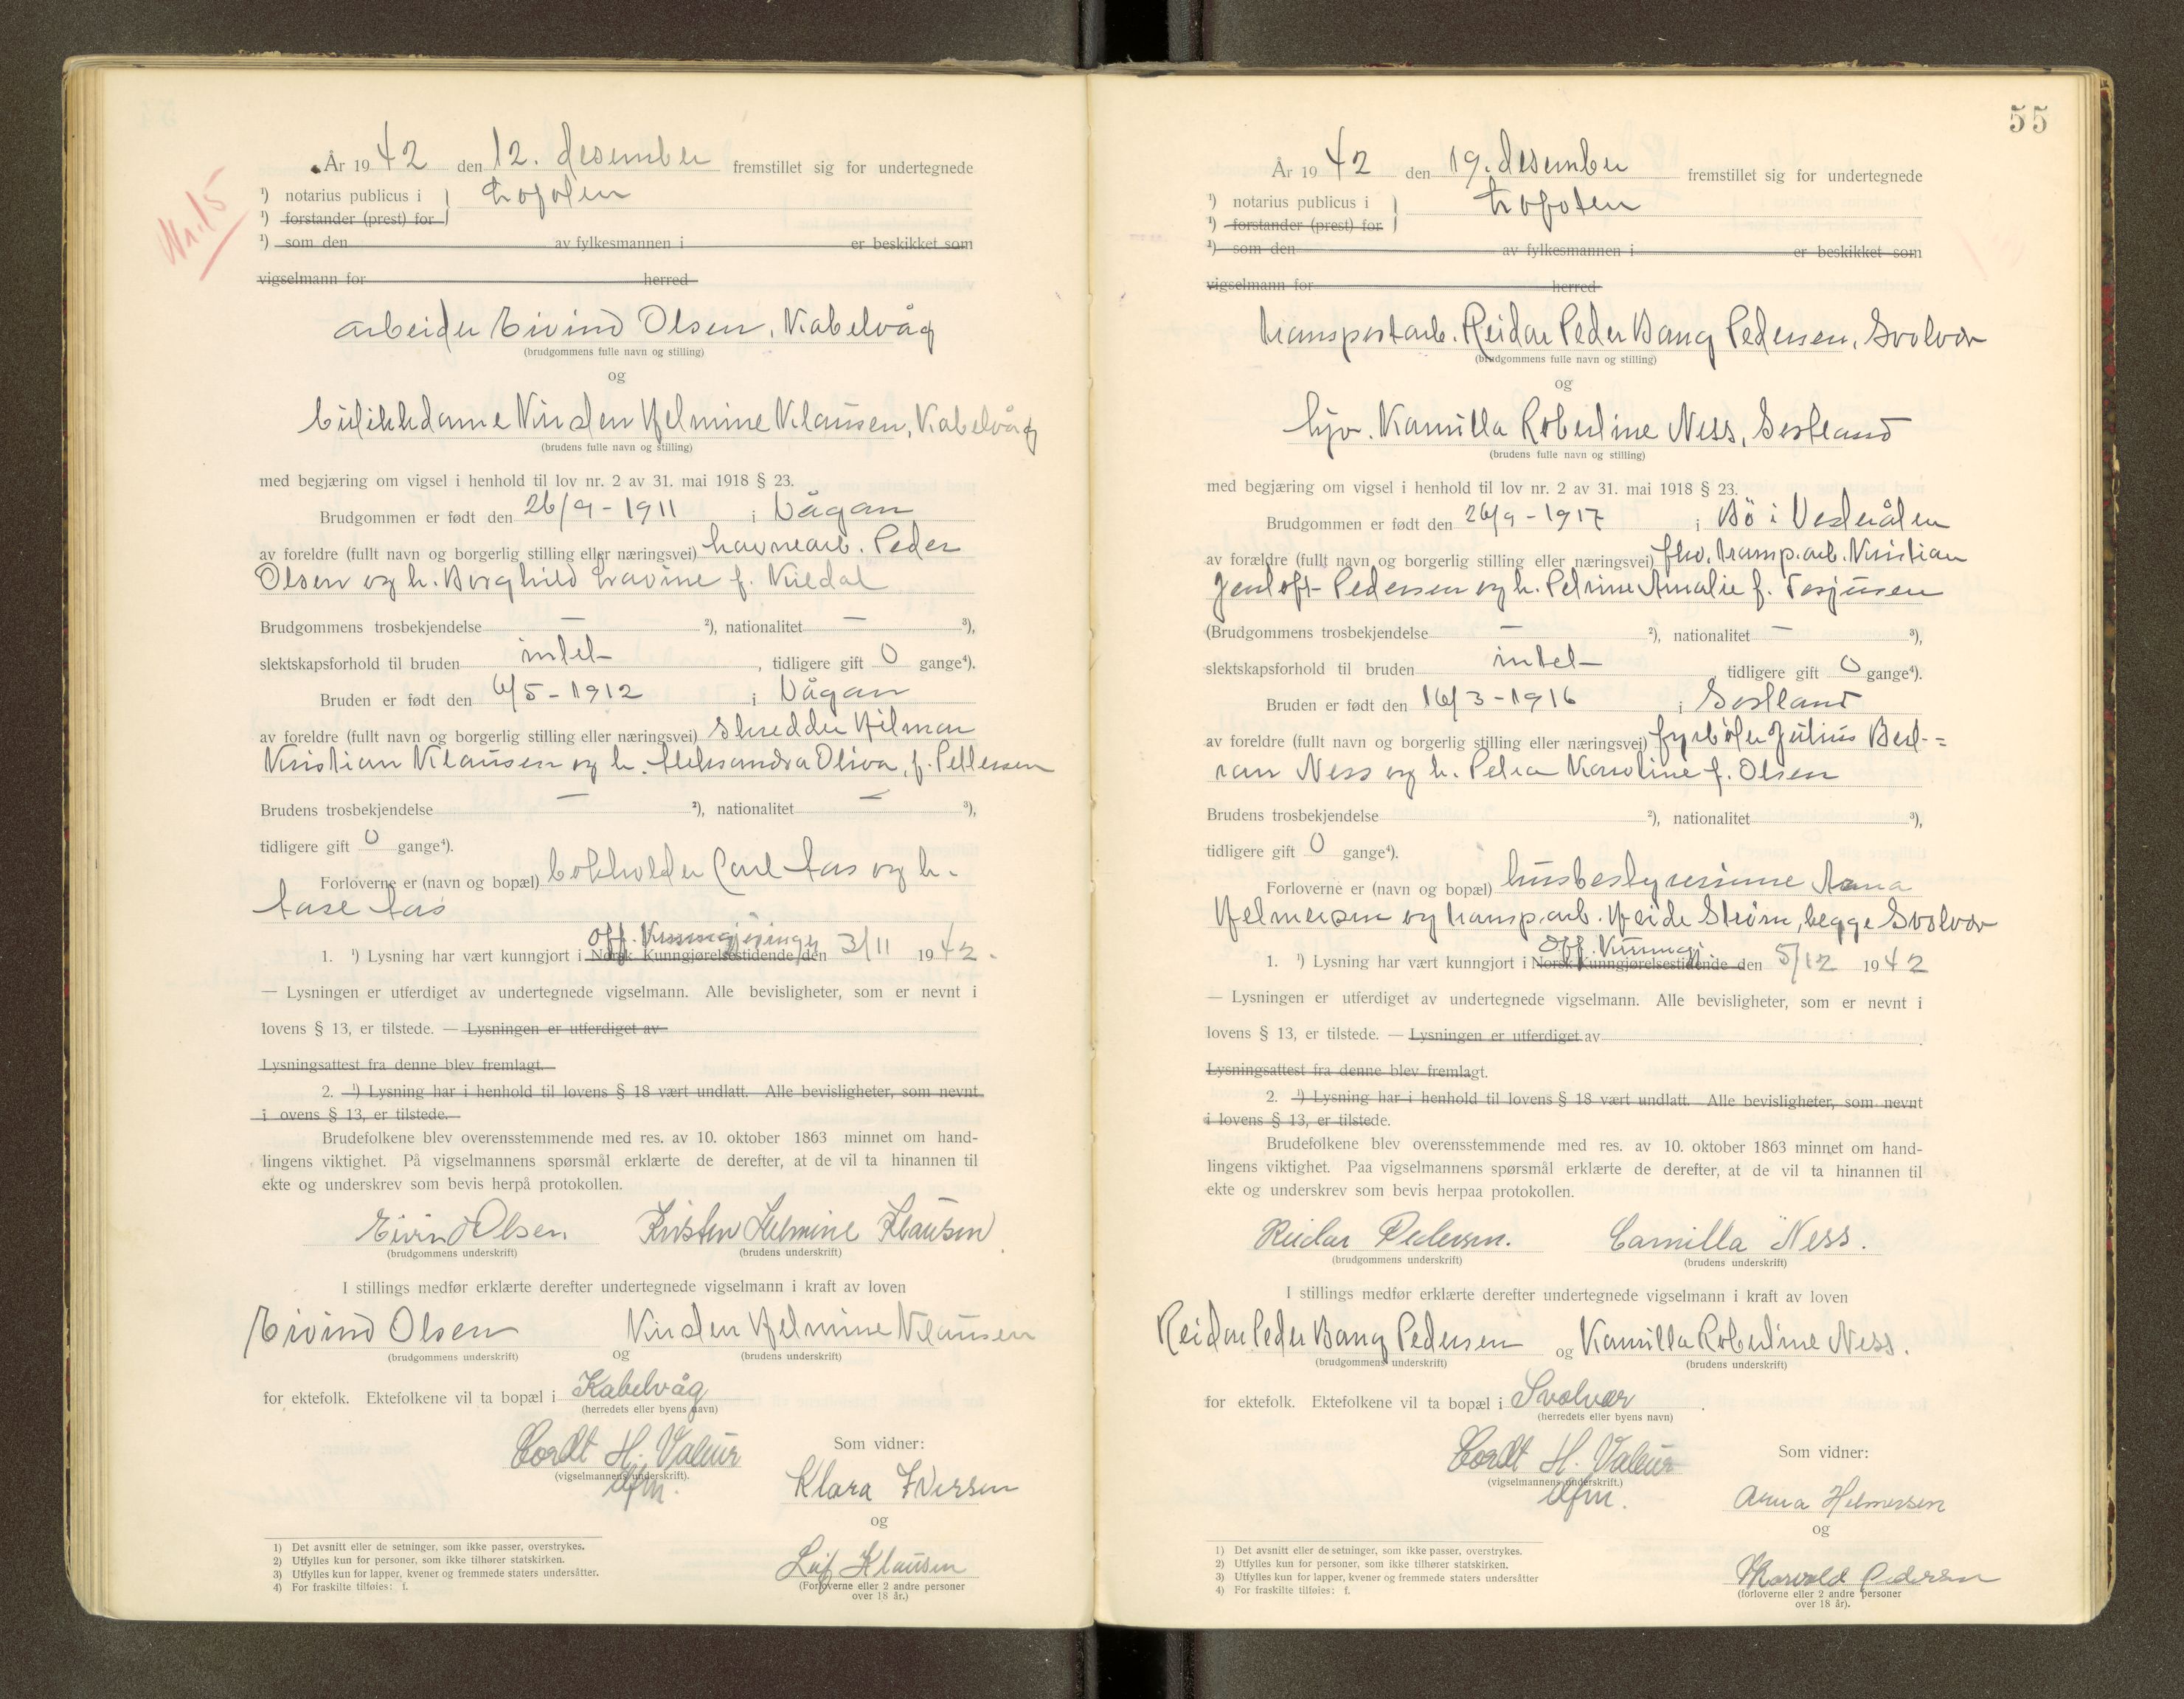 Nr. 15
År 1942 den 12. desember fremstillet sig for undertegnede
¹) notarius publicus i } Lofoten
¹) forstander (prest) for
¹) som den av fylkesmannen i er beskikket som
vigselmann for herred
arbeider Eivind Olsen, Kabelvåg
(brudgommens fulle navn og stilling)
og
butikkdame Kirsten Helmine Klausen, Kabelvåg
(brudens fulle navn og stilling)
med begjæring om vigsel i henhold til lov nr. 2 av 31. mai 1918 § 23.
Brudgommen er født den 26/9 - 1911 i Vågan
av foreldre (fullt navn og borgerlig stilling eller næringsvei) havnearb. Peder
Olsen og h. Borghild Lavine f. Kildal
Brudgommens trosbekjendelse — ²), nationalitet — ³),
slektskapsforhold til bruden intet , tidligere gift 0 gange⁴).
Bruden er født den 6/5 - 1912 i Vågan
av foreldre (fullt navn og borgerlig stilling eller næringsvei) skredder Hilmar
Kristian Klausen og h. Aleksandra Oliva, f. Pettersen
Brudens trosbekjendelse — ²), nationalitet — ³),
tidligere gift 0 gange⁴).
Forloverne er (navn og bopæl) bokholder Carl Aas og h.
Aase Aas
off. Kunngjøringer
1. ¹) Lysning har vært kunngjort i Norsk Kunngjørelsestidende den 3/11 1942.
— Lysningen er utferdiget av undertegnede vigselmann. Alle bevisligheter, som er nevnt i
lovens § 13, er tilstede. — Lysningen er utferdiget av
Lysningsattest fra denne blev fremlagt.
2. ¹) Lysning har i henhold til lovens § 18 vært undlatt. Alle bevisligheter, som nevnt
i ovens § 13, er tilstede.
Brudefolkene blev overensstemmende med res. av 10. oktober 1863 minnet om hand-
lingens viktighet. På vigselmannens spørsmål erklærte de derefter, at de vil ta hinannen til
ekte og underskrev som bevis herpå protokollen.
Eivind Olsen. Kirsten Helmine Klausen
(brudgommens underskrift) (brudens underskrift)
I stillings medfør erklærte derefter undertegnede vigselmann i kraft av loven
Eivind Olsen og Kirsten Helmine Klausen
(brudgommens underskrift) (brudens underskrift)
for ektefolk. Ektefolkene vil ta bopæl i Kabelvåg
(herredets eller byens navn)
Cordt H. Valeur
(vigselmannens underskrift).
Som vidner:
Klara Iversen
og
Leif Klausen
(Forloverne eller 2 andre personer
over 18 år.)
1) Det avsnitt eller de setninger, som ikke passer, overstrykes.
2) Utfylles kun for personer, som ikke tilhører statskirken.
3) Utfylles kun for lapper, kvener og fremmede staters undersåtter.
4) For fraskilte tilføies: f.
55
År 1942 den 19. desember fremstillet sig for undertegnede
¹) notarius publicus i } Lofoten
¹) forstander (prest) for
¹) som den av fylkesmannen i er beskikket som
vigselmann for herred
transportarb. Reidar Peder Bang Pedersen, Svolvær
(brudgommens fulle navn og stilling)
og
hjv. Kamilla Robertine Ness, Sortland
(brudens fulle navn og stilling)
med begjæring om vigsel i henhold til lov nr. 2 av 31. mai 1918 § 23.
Brudgommen er født den 26/9 - 1917 i Bö i Vesterålen
av forældre (fullt navn og borgerlig stilling eller næringsvei) fhv. transp.arb. Kristian
Jentoft Pedersen og h. Petrine Amalie f. Torjusen
(Brudgommens trosbekjendelse — ²), nationalitet — ³),
slektskapsforhold til bruden intet , tidligere gift 0 gange⁴).
Bruden er født den 16/3 - 1916 i Sortland
av foreldre (fullt navn og borgerlig stilling eller næringsvei) fyrbøter Julius Bert-=
ran Ness og h. Petra Karoline f. Olsen
Brudens trosbekjendelse ²), nationalitet ³),
tidligere gift 0 gange⁴).
Forloverne er (navn og bopæl) husbestyrerinne Anna
Helmersen og transp.arb. Heide Strøm, begge Svolvær
off. Kunngj.
1. ¹) Lysning har vært kunngjort i Norsk Kunngjørelsestidende den 5/12 1942
— Lysningen er utferdiget av undertegnede vigselmann. Alle bevisligheter, som er nevnt i
lovens § 13, er tilstede. — Lysningen er utferdiget av
Lysningsattest fra denne blev fremlagt.
2. ¹) Lysning har i henhold til lovens § 18 vært undlatt. Alle bevisligheter, som nevnt
i lovens § 13, er tilstede.
Brudefolkene blev overensstemmende med res. av 10. oktober 1863 minnet om hand-
lingens viktighet. Paa vigselmannens spørsmål erklærte de derefter, at de vil ta hinannen til
ekte og underskrev som bevis herpaa protokollen.
Reidar Pedersen. Camilla Ness.
(brudgommens underskrift) (brudens underskrift)
I stillings medfør erklærte derefter undertegnede vigselmann i kraft av loven
Reidar Peder Bang Pedersen og Kamilla Robertine Ness.
(brudgommens underskrift) (brudens underskrift)
for ektefolk. Ektefolkene vil ta bopæl i Svolvær.
(herredets eller byens navn)
Cordt H. Valeur
(vigselmannens underskrift.)
Som vidner:
Anna Helmersen
og
Thorvald Pedersen
(forloverne eller 2 andre personer
over 18 år).
1) Det avsnitt eller de setninger, som ikke passer, overstrykes.
2) Utfylles kun for personer, som ikke tilhører statskirken.
3) Utfylles kun for lapper, kvener og fremmede staters undersåtter
4) For fraskilte tilføies: f.